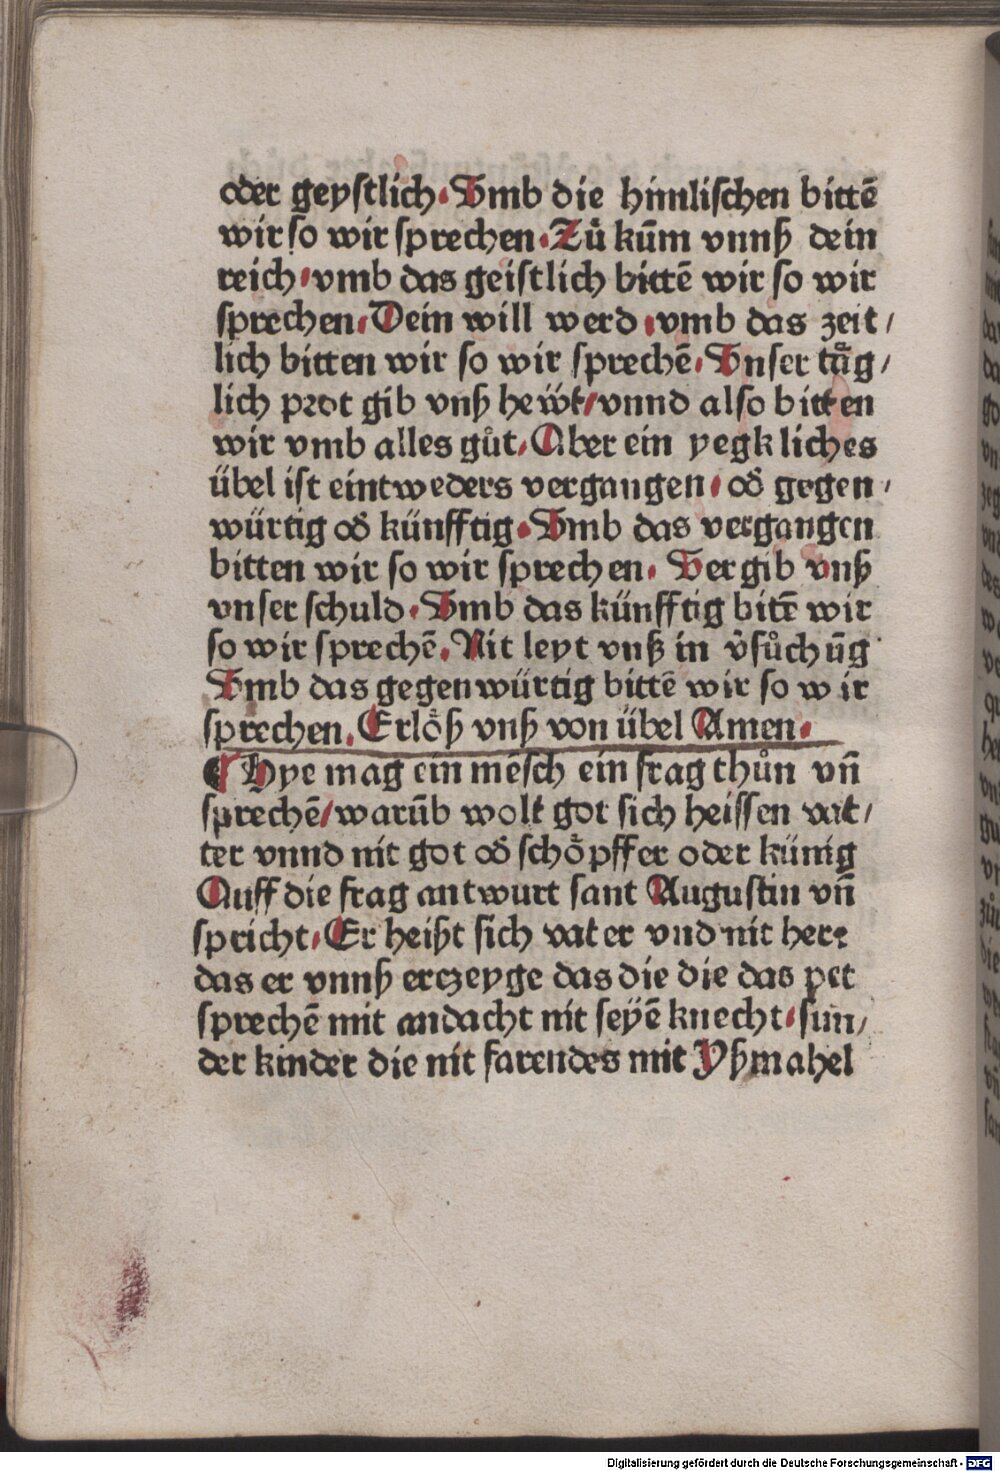 oder geyſtlich. Vmb die himliſchen bittē
wir ſo wir ſprechen. Zů kūm vnnß dein
reich / vmb das geiſtlich bittē wir ſo wir
ſprechen. Dein will werd / vmb das zeit /
lich bitten wir ſo wir ſprechē. Vnſer tåg /
lich prot gib vnß hewt / vnnd alſo bitten
wir vmb alles gůt. Aber ein yegkliches
übel iſt eintweders vergangen. oď gegen /
würtig oď künfftig. Vmb das vergangen
bitten wir ſo wir ſprechen. Vergib vnß
vnſer ſchuld. Vmb das künfftig bitē wir
ſo wir ſprechē. Nit leyt vnß in v̓ſůchūg
Vmb das gegenwürtig bittē wir ſo wir
ſprechen. Erlöß vnß von übel Amen.
¶ Hye mag ein mēſch ein frag thůn vn̄
ſprechē / warūb wolt got ſich heiſſen vat /
ter vnnd nit got oď ſchöpffer oder künig
Auff die frag antwurt ſant Auguſtin vn̄
ſpricht. Er heißt ſich vater vnd nit herꝛ
das er vnnß erczeyge das die die das pet
ſprechē mit andacht nit ſeyē knecht. ſun /
der kinder die nit farendes mit Yßmahel
Digitalisierung gefördert durch die Deutsche Forschungsgemeinschaft - DFG